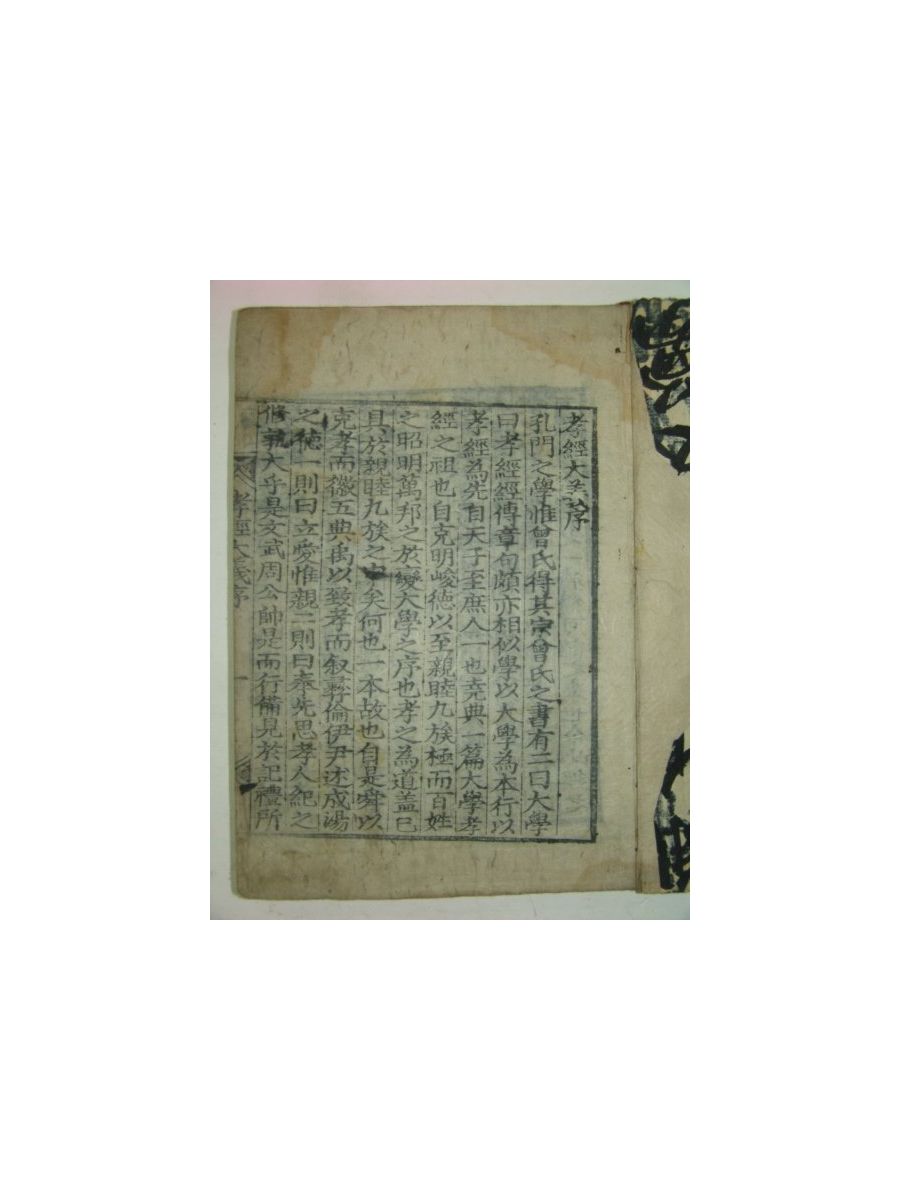 孝經大義序
孔門之學惟曾氏得其宗曾氏之書有二曰大學
曰孝經經傳章句頗亦相似學以大學為本行以
孝經為先自天子至庶人一也堯典一篇大學孝
經之祖也自克明峻德以至親睦九族極而百姓
之昭明萬邦之於變大學之序也孝之為道盖已
具於親睦九族之中矣何也一本故也自是舜以
克孝而徽五典禹以致孝而叙彛倫伊尹述成湯
之德一則曰立愛惟親二則曰奉先思孝人紀之
修孰大乎是文武周公帥是而行備見於記禮所
孝經大義序 一